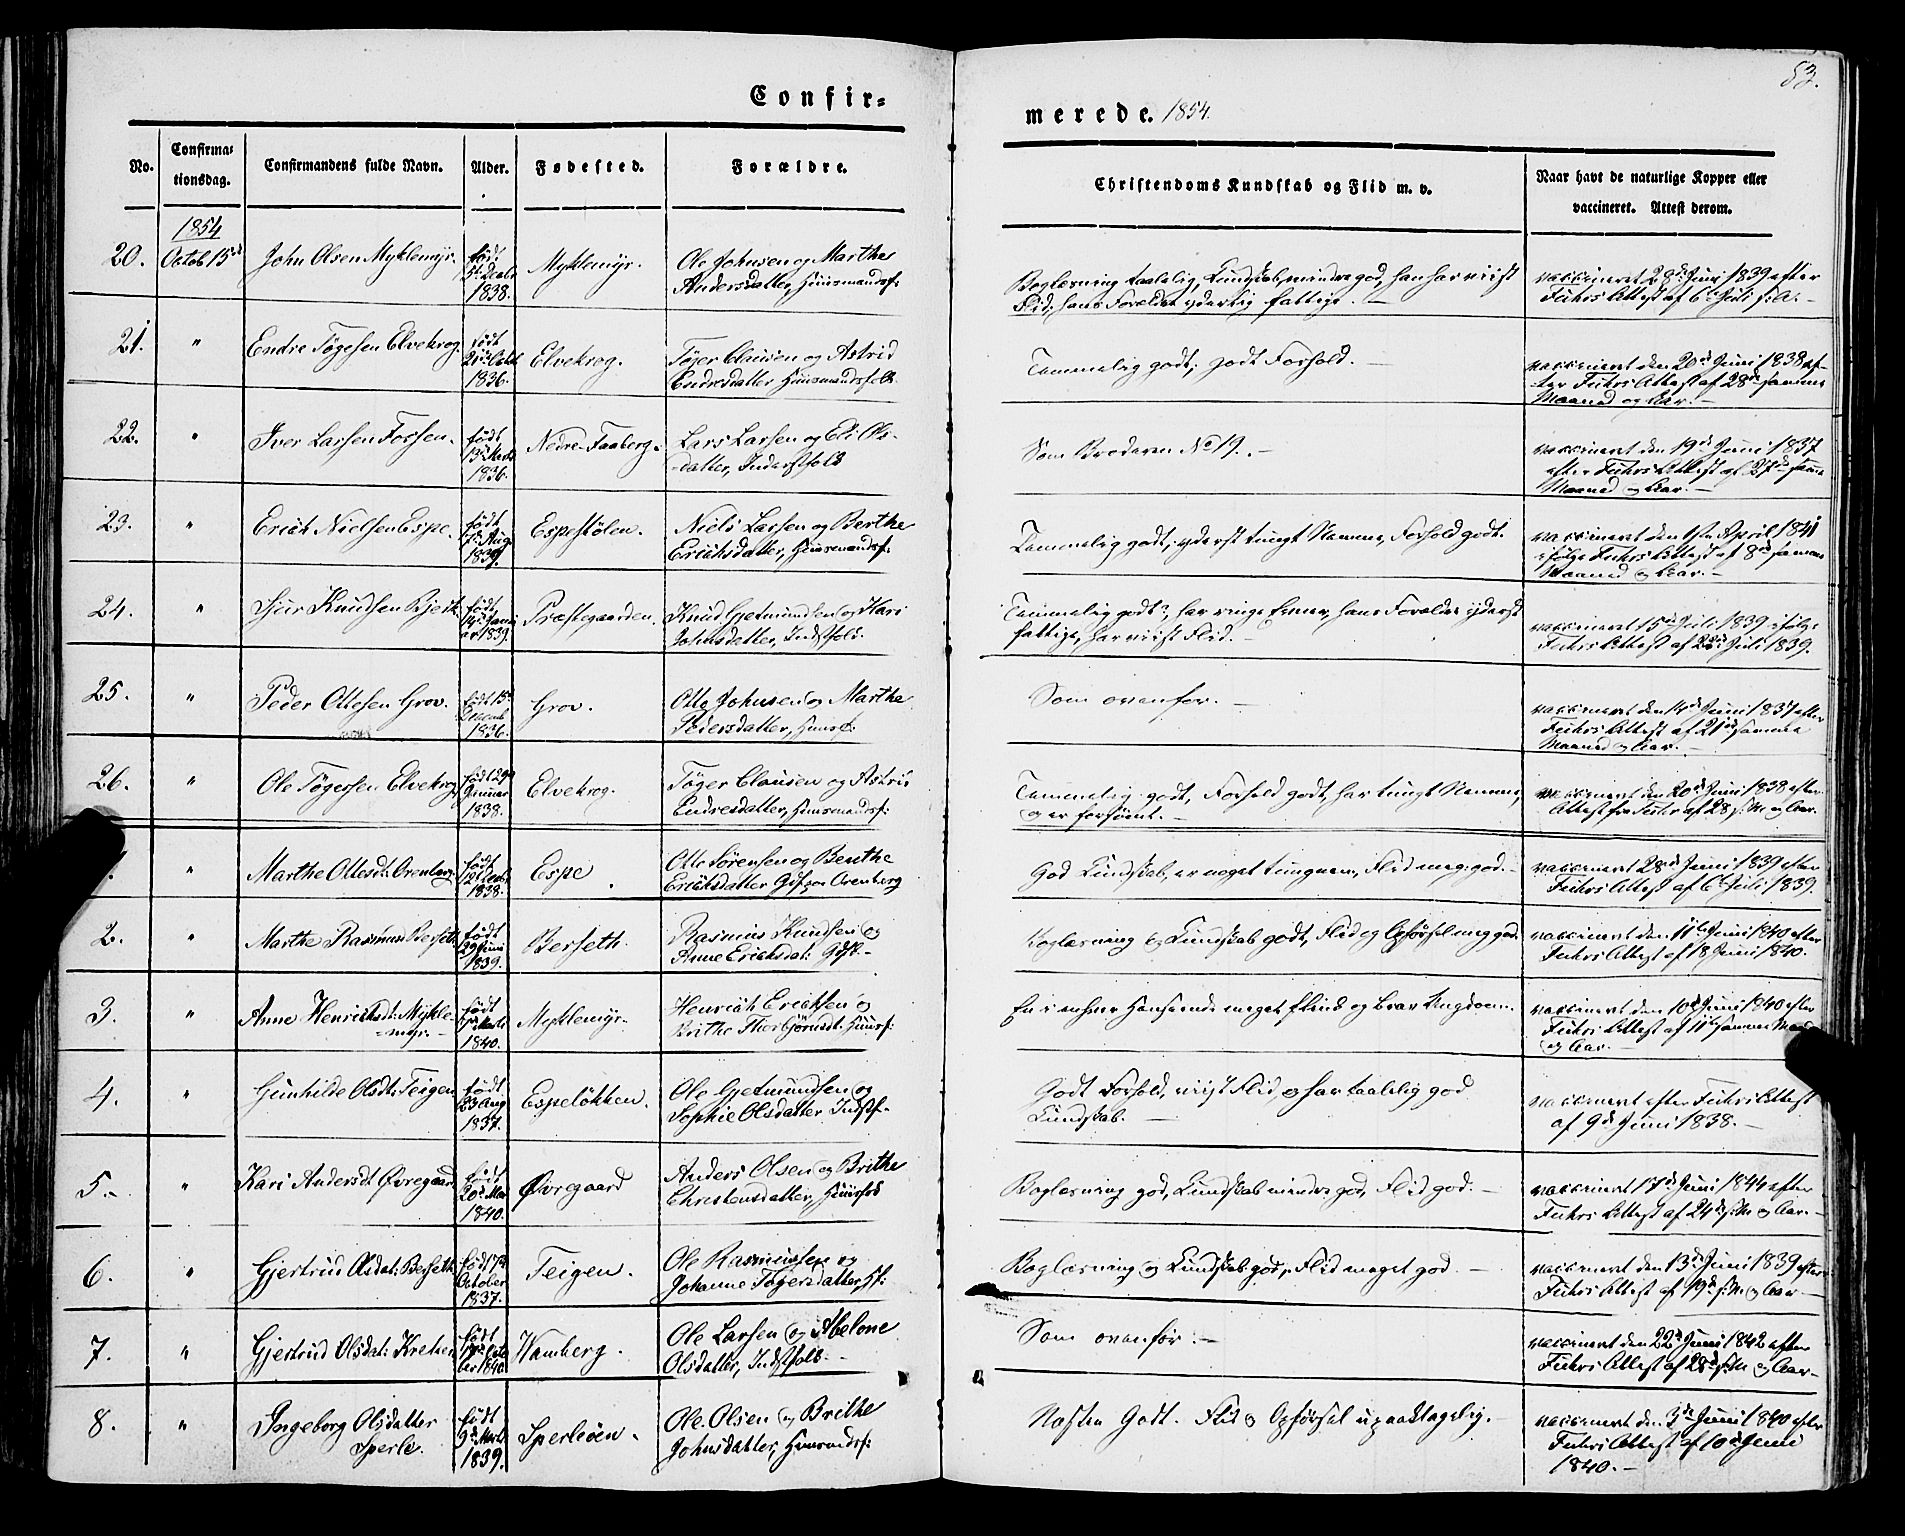 53.
Confir-
merede. 1854.
No.
Confirma-
tionsdag.
Confirmandens fulde Navn.
Alder.
Fødested.
Forældre.
Christendoms Kundskab og Flid m. v.
Naar havt de naturlige Kopper eller
vaccineret. Attest derom.
1854
20. Octob 15de John Olsen Myklemyr. født Myklemyr. Ole Johnsen og Marthe
1838. Andersdatter, Huusmandsf:
Boglæsning taalelig, Kundskab mindre god, han har viist
Flid, hans Forældre yderlig fattige. —
vaccineret 28de Juni 1839 efter
Fuhrs Attest af 6te Juli s. A. —
21. " Endre Tøgesen Elvekrog. født Elvekrog. Tøger Clausen og Astrid
1836. Endresdatter Huusmandsfolk
Temmelig godt, godt Forhold. —
vaccineret den 20de Juni 1838 ef-
ter Fuhrs Attest af 28de samme
Maaned og Aar. —
22. " Iver Larsen Fossen. født Nedre-Faaberg. Lars Larsen og Eli Ols-
1836. datter, Inderstfolk
Som Broderen No 19. —
vaccineret den 19de Juni 1837
efter Fuhrs Attest af 27de samme
Maaned og Aar. —
23. " Erich Nielsen Espe. født Espestølen. Niels Larsen og Berthe
Aug. 1839. Erichsdatter, Huusmandsf:
Temmelig godt, yderst tungt Nemme, Forhold godt.
vaccineret den 1ste April 1841
ifølge Fuhrs Attest af 8de samme
Maaned og Aar. —
24. " Sjur Knudsen Bjerk født 14de Janu- Præstegaarden. Knud Gjetmundsen og Kari
ar 1839. Johnsdatter, Indstfolk.
Temmelig godt, har ringe Evner, hans Forældre yderst
fattige, har viist Flid. —
vaccineret 15de Juli 1839 ifølge
Fuhrs Attest af 22de Juli 1839.
25. " Peder Ottesen Grov. født 15de Grov. Otte Johnsen og Marthe
Decemb 1836. Pedersdatter, Huusf:
Som ovenfor. —
vaccineret den 14de Juni 1837 efter
Fuhrs Attest af 21de samme
Maaned og Aar. —
26. " Ole Tøgersen Elvekrog født 29de Elvekrog. Tøger Clausen og Astrid
1838. Endresdatter, Huusmandsf:
Temmelig godt, Forhold godt, har tungt Nemme,
og er forsømt. —
vaccineret den 20de Juni 1838 efter
Attest fra Fester af 28 s. M. og Aar.
" Marthe Ottesdt: Orenberg. født Espe. Otte Sørensen og Berthe
1838. Erichsdatter Gdf. paa Orenberg
God Kundskab, er meget tungnem, Flid meg: god. —
vaccineret 28de Juni 1839 efter
Fuhrs Attest af 6te Juli 1839.
2. " Marthe Rasmusd Berseth født Berseth. Rasmus Knudsen og
29 Juni 1839. Anne Ericksdat: Gdf. —
Boglæsning og Kundskab godt, Flid og Opførsel meg god.
vaccineret den 11te Juni 1840 efter
Fuhrs Attest af 18 Juni 1840.
3. " Anne Henriksdt: Mykle- født Myklemyr. Henrich Ericksen og
myr. — Marts 1840. Brithe Thorgjersdt. Huusf:
En i enhver Henseende meget flink og brav Ungdom.
vaccineret den 10de Juni 1840 efter
Fuhrs Attest af 11te samme Maan
og Aar. —
4. " Gunhilde Olsdt: Teigen født Espeløkken. Ole Gjetmundsen og
23 Aug 1837. Sophie Olsdatter Indstf. —
Godt Forhold, viist Flid, og har taalelig god
Kundskab. —
vaccineret efter Fuhrs Attest
af 9de Juni 1838. —
5. " Kari Andersdt Øvregaard født Øvregaard Anders Olsen og Brithe
20de Mar 1840. Christensdatter, Huusfolk
Boglæsning god, Kundskab mindre god, Flid god. —
vaccineret 17de Juni 1844 efter
Fuhrs Attest af 24de s. M. og Aar. —
6. " Gjertrud Olsdat: Berseth født 17de Teigen. Ole Rasmussen og
October 1837. Johanne Tøgersdatter, Hf:
Boglæsning og Kundskab god, Flid meget god. —
vaccineret den 13de Juni 1839 efter
Fuhrs Attest af 19de s. M. og Aar —
7. " Gjertrud Olsdat: Kreken født Wamberg. Ole Larsen og Abelone
1840. Olsdatter, Indstfolk. —
Som ovenfor. —
vaccineret den 22de Juni 1842 efter
Fuhrs Attest af 28de s. M. og Aar —
8. " Ingeborg Olsdatter født Sperleøen. Ole Olsen og Brithe
Sperle. 9de Marts 1839. Johnsdatter, Huusmandsf:
Næsten Godt. Flid og Opførsel upaaklagelig. —
vaccineret den 3de Juni 1840 efter
Fuhrs Attest af 10de Juni
1840. —